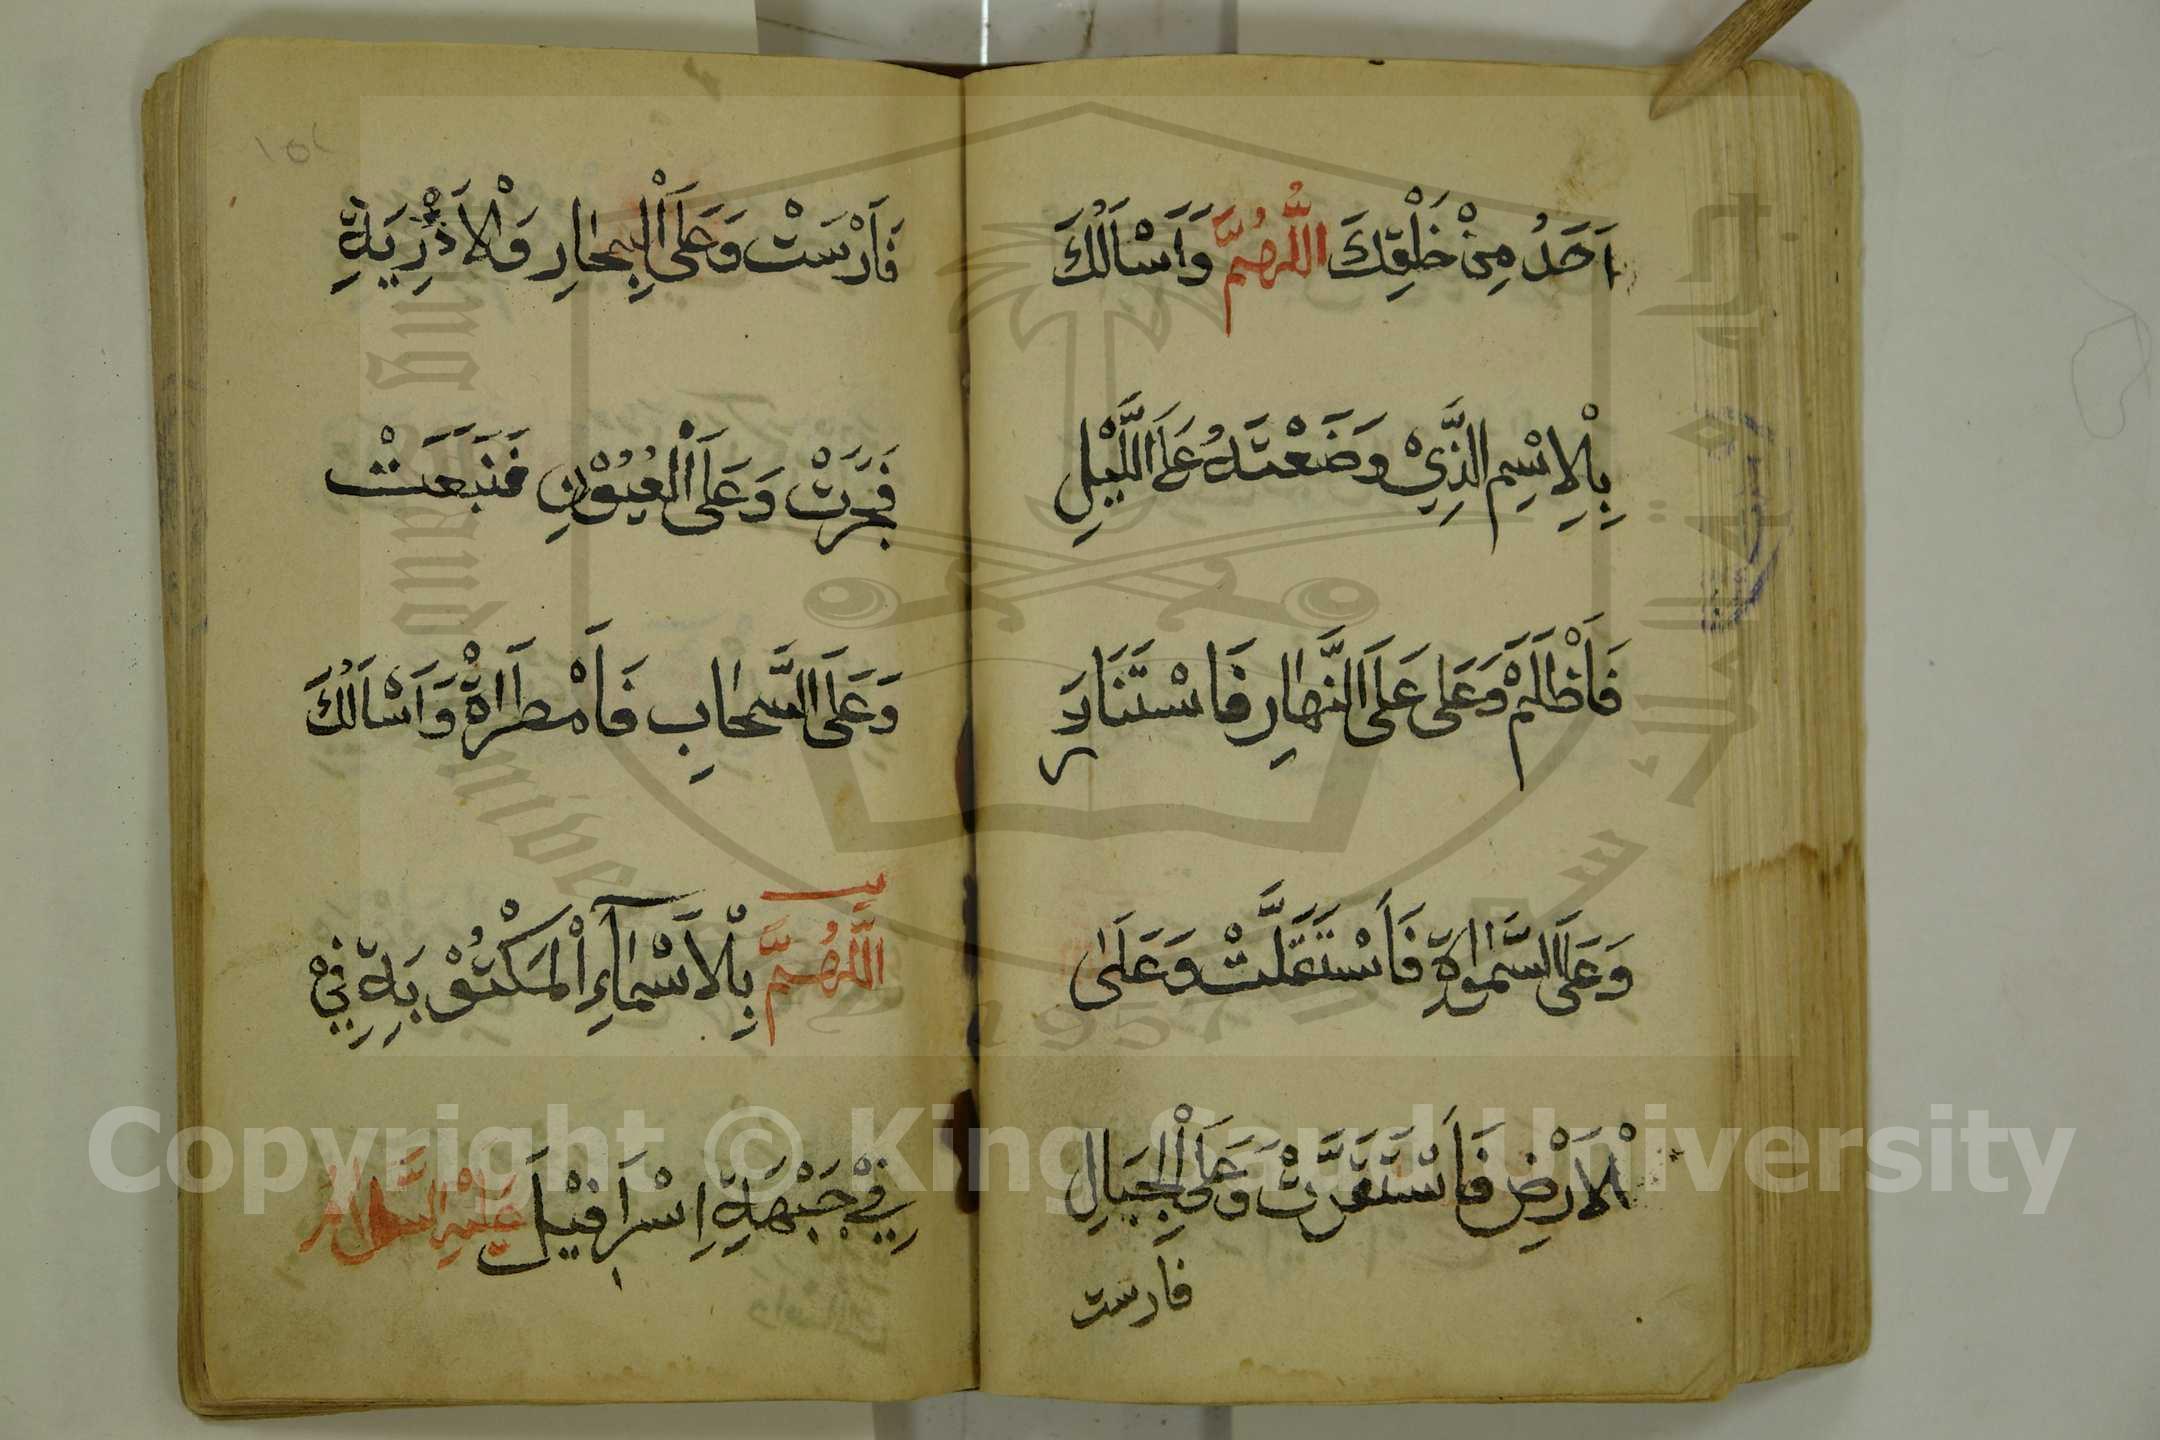 اَحَدُ مِنْ خَلْقِكَ اللّٰهُمَّ وَاَسْاَلُكَ
بِالْاِسْمِ الَّذِيْ وَضَعْتَهُ عَلَي اللَّيْلِ
فَاَظْلَمْ وَعَلٰى عَلَى النَّهٰارِ فَاسْتَنَارَ
وَعَلَى السَّمٰوٰاةِ فَاَسْتَقَلَّتْ وَعَلٰى
الْاَرْضِ فَاَسْتَقَرَّتْ وَعَلَى الْجِبَالِ
فارست
١٥٢
فَاَرْسَتْ وَعَلَى الْبِحٰارِ وَالْاَوْدِيَةِ
فَجَرَتْ وَعَلَى الْعُيُوْنِ فَنَبَعَتْ
وَعَلَى السَّحٰابِ فَاَمْطَرَاةْ وَاَسْاَلُكَ
اللّٰهُمَّ بِالْاَسْمٰآءِ الْمَكْتُوْ بَةِ فِيْ
فِيْ جَبْهَةِ اِسْرَافِيْلَ عَلَيْهِ السَّلَامُ
Copyright © King Saud University
1957